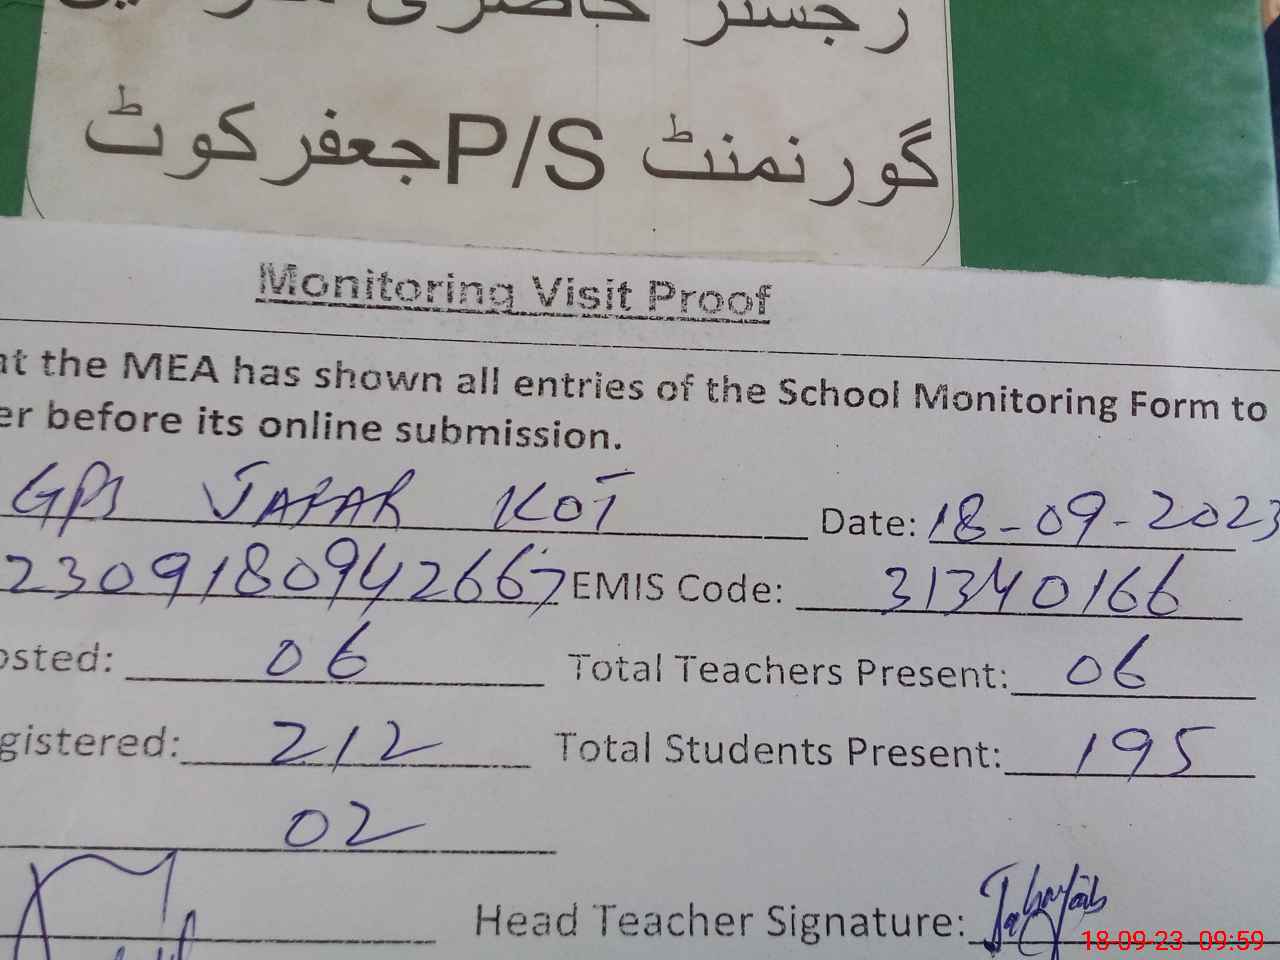 رجسٹر حاضری
گورنمنٹ P/S جعفر کوٹ
Monitoring Visit Proof
at the MEA has shown all entries of the School Monitoring Form to
er before its online submission.
GPS JAFAR KOT Date: 18-09-2023
230918094 2667 EMIS Code: 31340166
osted: 06 Total Teachers Present: 06
gistered: 212 Total Students Present: 195
02
Head Teacher Signature:
18-09-23 09:59